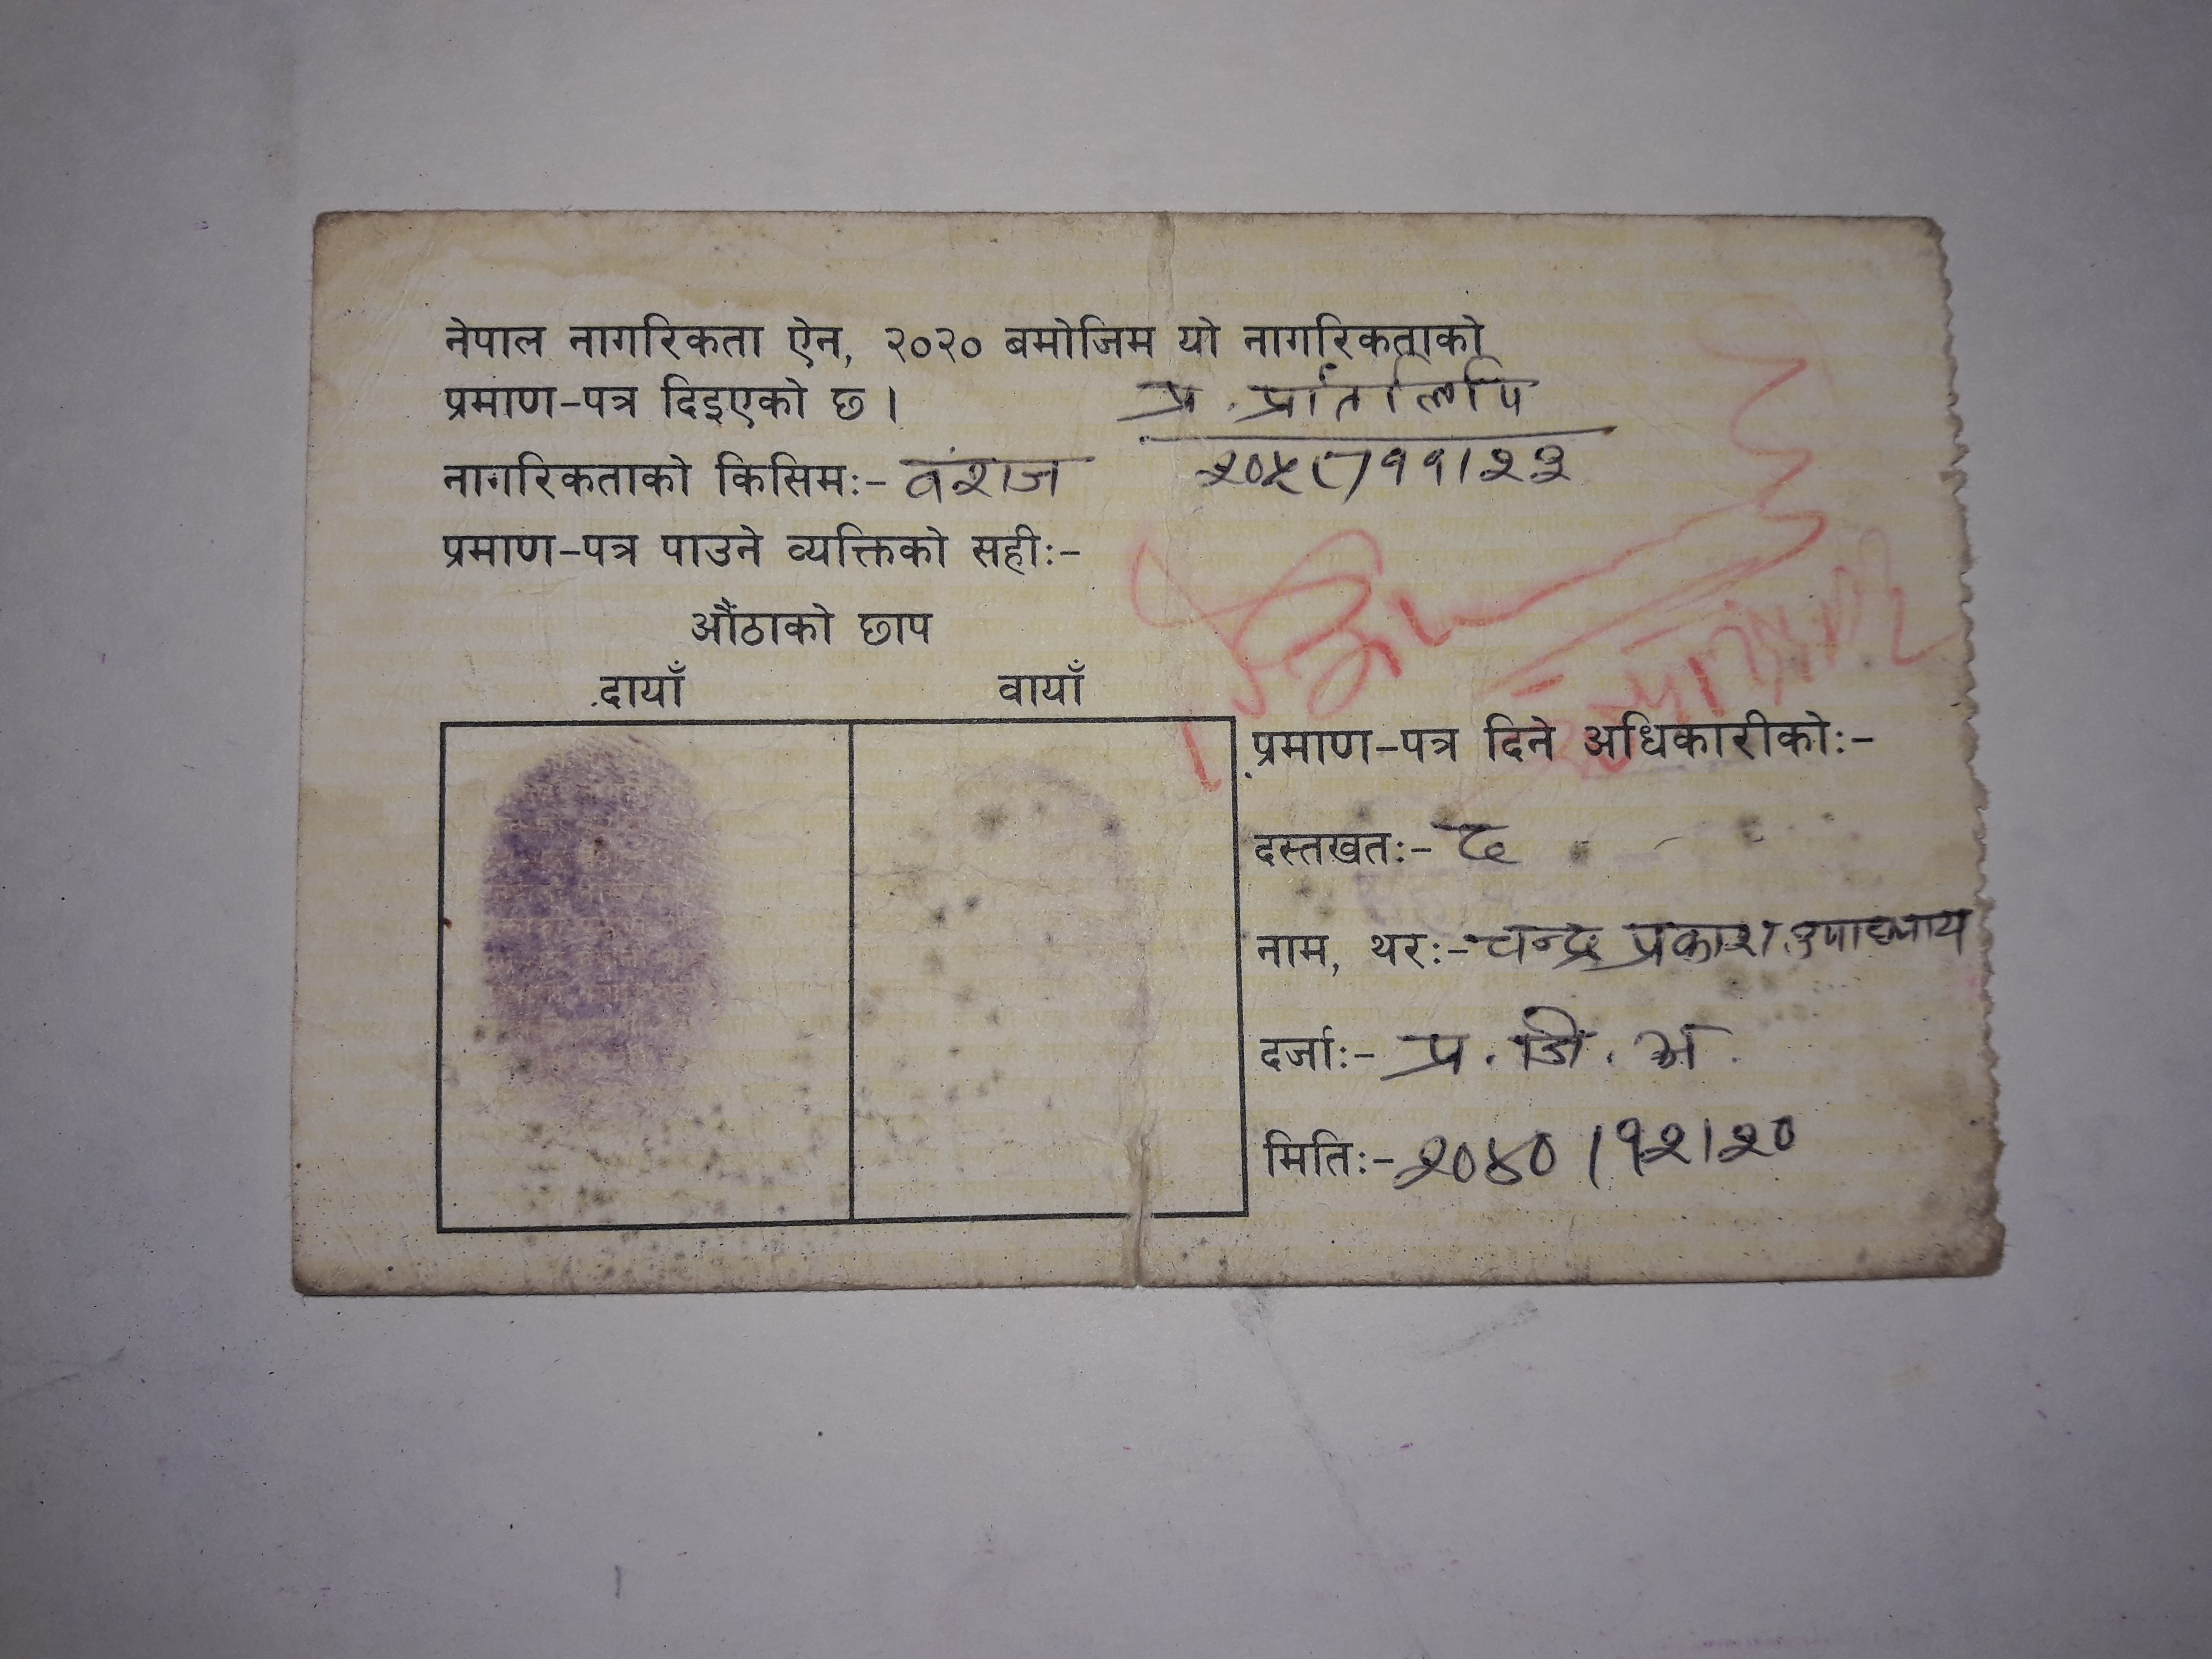 नेपाल नागरिकता ऐन, २०२० बमोजिम यो नागरिकताको
प्रमाण-पत्र दिइएको छ ।
प्र. प्रतिलिपि
नागरिकताको किसिमः- वंशज
२०५८/११/२३
प्रमाण-पत्र पाउने व्यक्तिको सहीः-
औंठाको छाप
दायाँ बायाँ
प्रमाण-पत्र दिने अधिकारीकोः-
दस्तखतः- छ
नाम, थरः- चन्द्र प्रकाश उपाध्याय
दर्जाः- प्र. जि. अ.
मितिः- २०४०।१२।२०